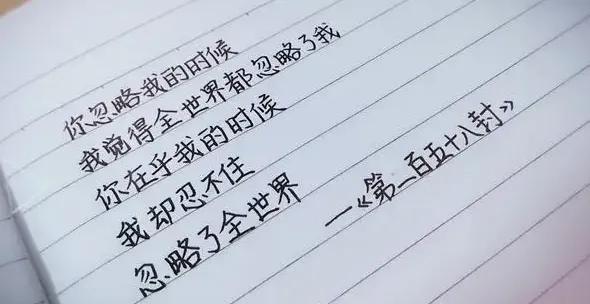 你忽略我的时候
我觉得全世界都忽略了我
你在乎我的时候
我却忍不住
忽略了全世界
—《第一百五十八封》